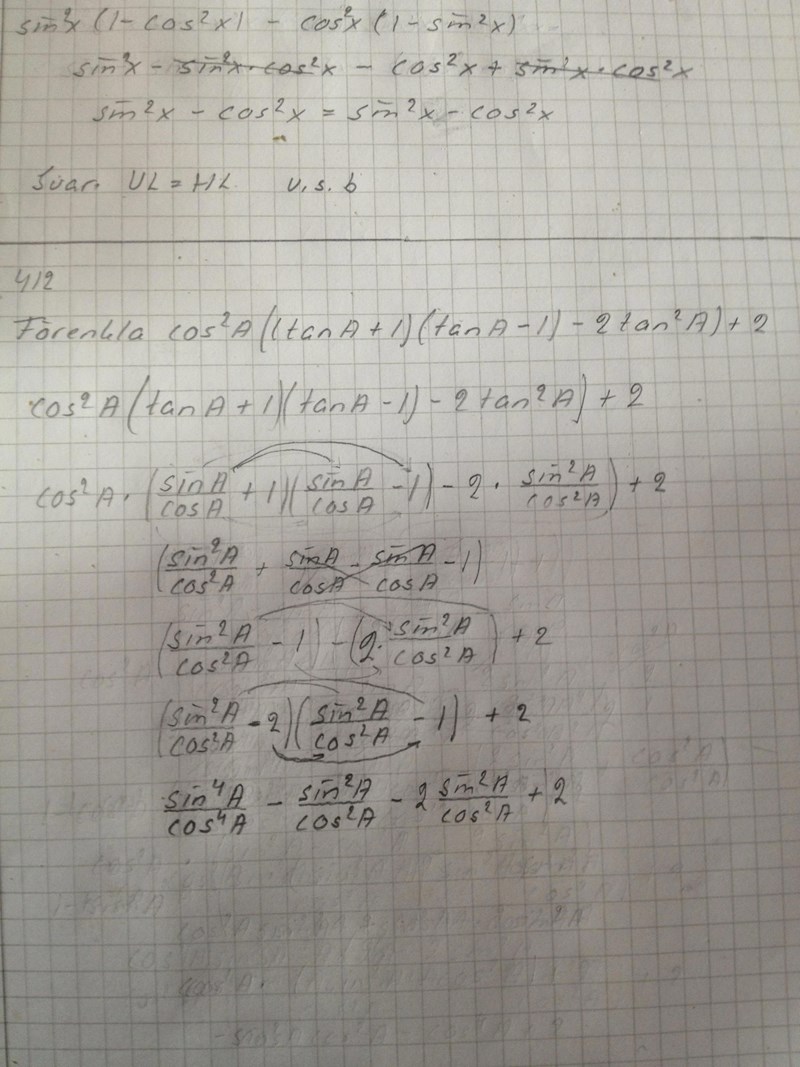 sin²x (1 - cos²x) - cos²x (1 - sin²x)
sin²x - sin²x · cos²x - cos²x + sin²x · cos²x
sin²x - cos²x = sin²x - cos²x
Svar. VL = HL v.s.b
412
Förenkla cos²A((tanA + 1)(tanA - 1) - 2 tan²A) + 2
cos²A (tanA + 1)(tanA - 1) - 2 tan²A) + 2
cos²A · (sinA/cosA + 1)(sinA/cosA - 1) - 2 · sin²A/cos²A) + 2
(sin²A/cos²A + sinA/cosA - sinA/cosA - 1)
(sin²A/cos²A - 1) - (2 · sin²A/cos²A) + 2
(sin²A/cos²A - 2)(sin²A/cos²A - 1) + 2
sin⁴A/cos⁴A - sin²A/cos²A - 2 sin²A/cos²A + 2